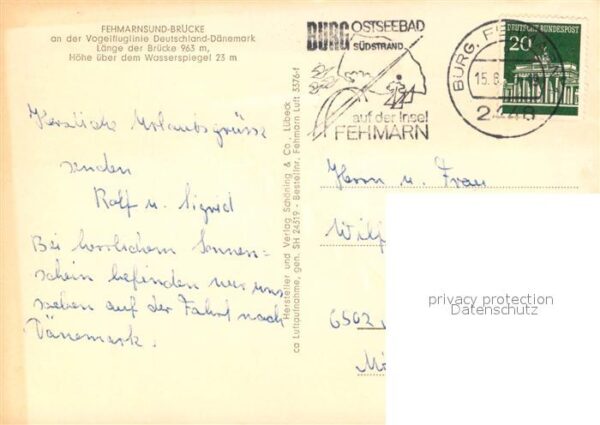 FEHMARNSUND-BRÜCKE
an der Vogelfluglinie Deutschland-Dänemark
Länge der Brücke 963 m,
Höhe über dem Wasserspiegel 23 m
Herzliche Urlaubsgrüsse
senden
Rolf u. Sigrid
Bei herrlichem Sonnen=
schein befinden wir uns
soeben auf der Fahrt nach
Dänemark.
Hersteller und Verlag Schöning & Co., Lübeck
ca Luftaufnahme, gen. SH 24519 - Bestellnr. Fehmarn Luft 3376-f
BURG OSTSEEBAD
SÜDSTRAND
auf der Insel
FEHMARN
BURG, FE
15.8.
2448
DEUTSCHE BUNDESPOST
20
Herrn u. Frau
Wilf
6502
privacy protection
Datenschutz